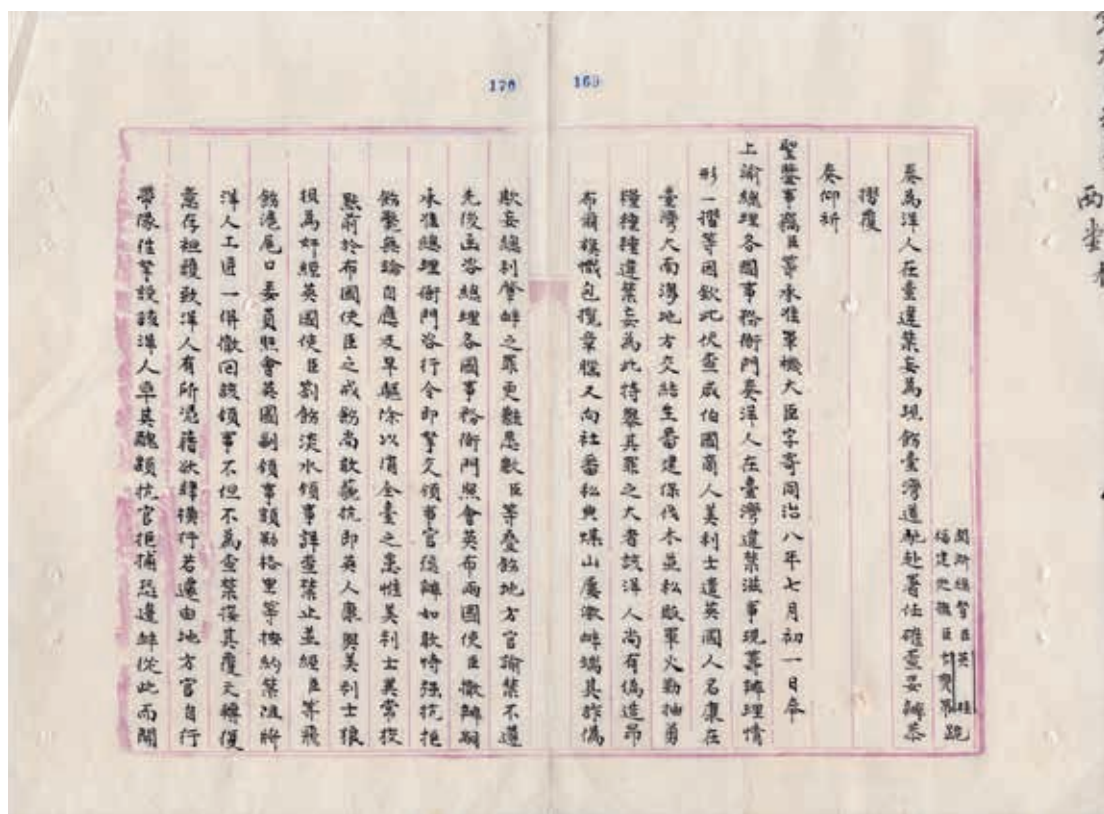 169
閩浙總督臣英桂
福建巡撫臣卞寶第跪
奏為洋人在臺違禁妄為現飭臺灣道馳赴署任確查妥辦恭
摺覆
奏仰祈
聖鑒事竊臣等承准軍機大臣字寄同治八年七月初一日奉
上諭總理各國事務衙門奏洋人在臺灣違禁滋事現籌辦理情
形一摺等因欽此伏查咸伯國商人美利士遣英國人名康在
臺灣大南澳地方交結生番建保伐木並私販軍火勒抽
種種違禁妄為此特舉其罪之大者該洋人尚有偽造
布爾旗幟包攬 又向社番私 煤山屢滋衅端其詐偽
176
欺妄總利啓衅之罪更難悉數臣等疊飭地方官諭禁不遵
先後函咨總理各國事務衙門照會英布兩國使臣撤辦嗣
承准總理衙門咨行令即拏交領事官懲辦如敢恃強抗拒
飭 無論自應及早驅除以消全臺之患惟美利士異常狡
點前於布國使臣之戒飭尚敢藐抗即英人康與美利士狼
狽為奸經英國使臣劄飭淡水領事詳查禁止並經臣等飛
飭滬尾口委員照會英國副領事額勒格里等按約禁阻將
洋人工匠一併撤回該領事不但不為查禁接其覆文 復
意存袒護致洋人有所憑藉欲肆橫行若遽由地方官自行
帶隊往拏設該洋人率其醜類抗官拒捕恐邊衅從此而開